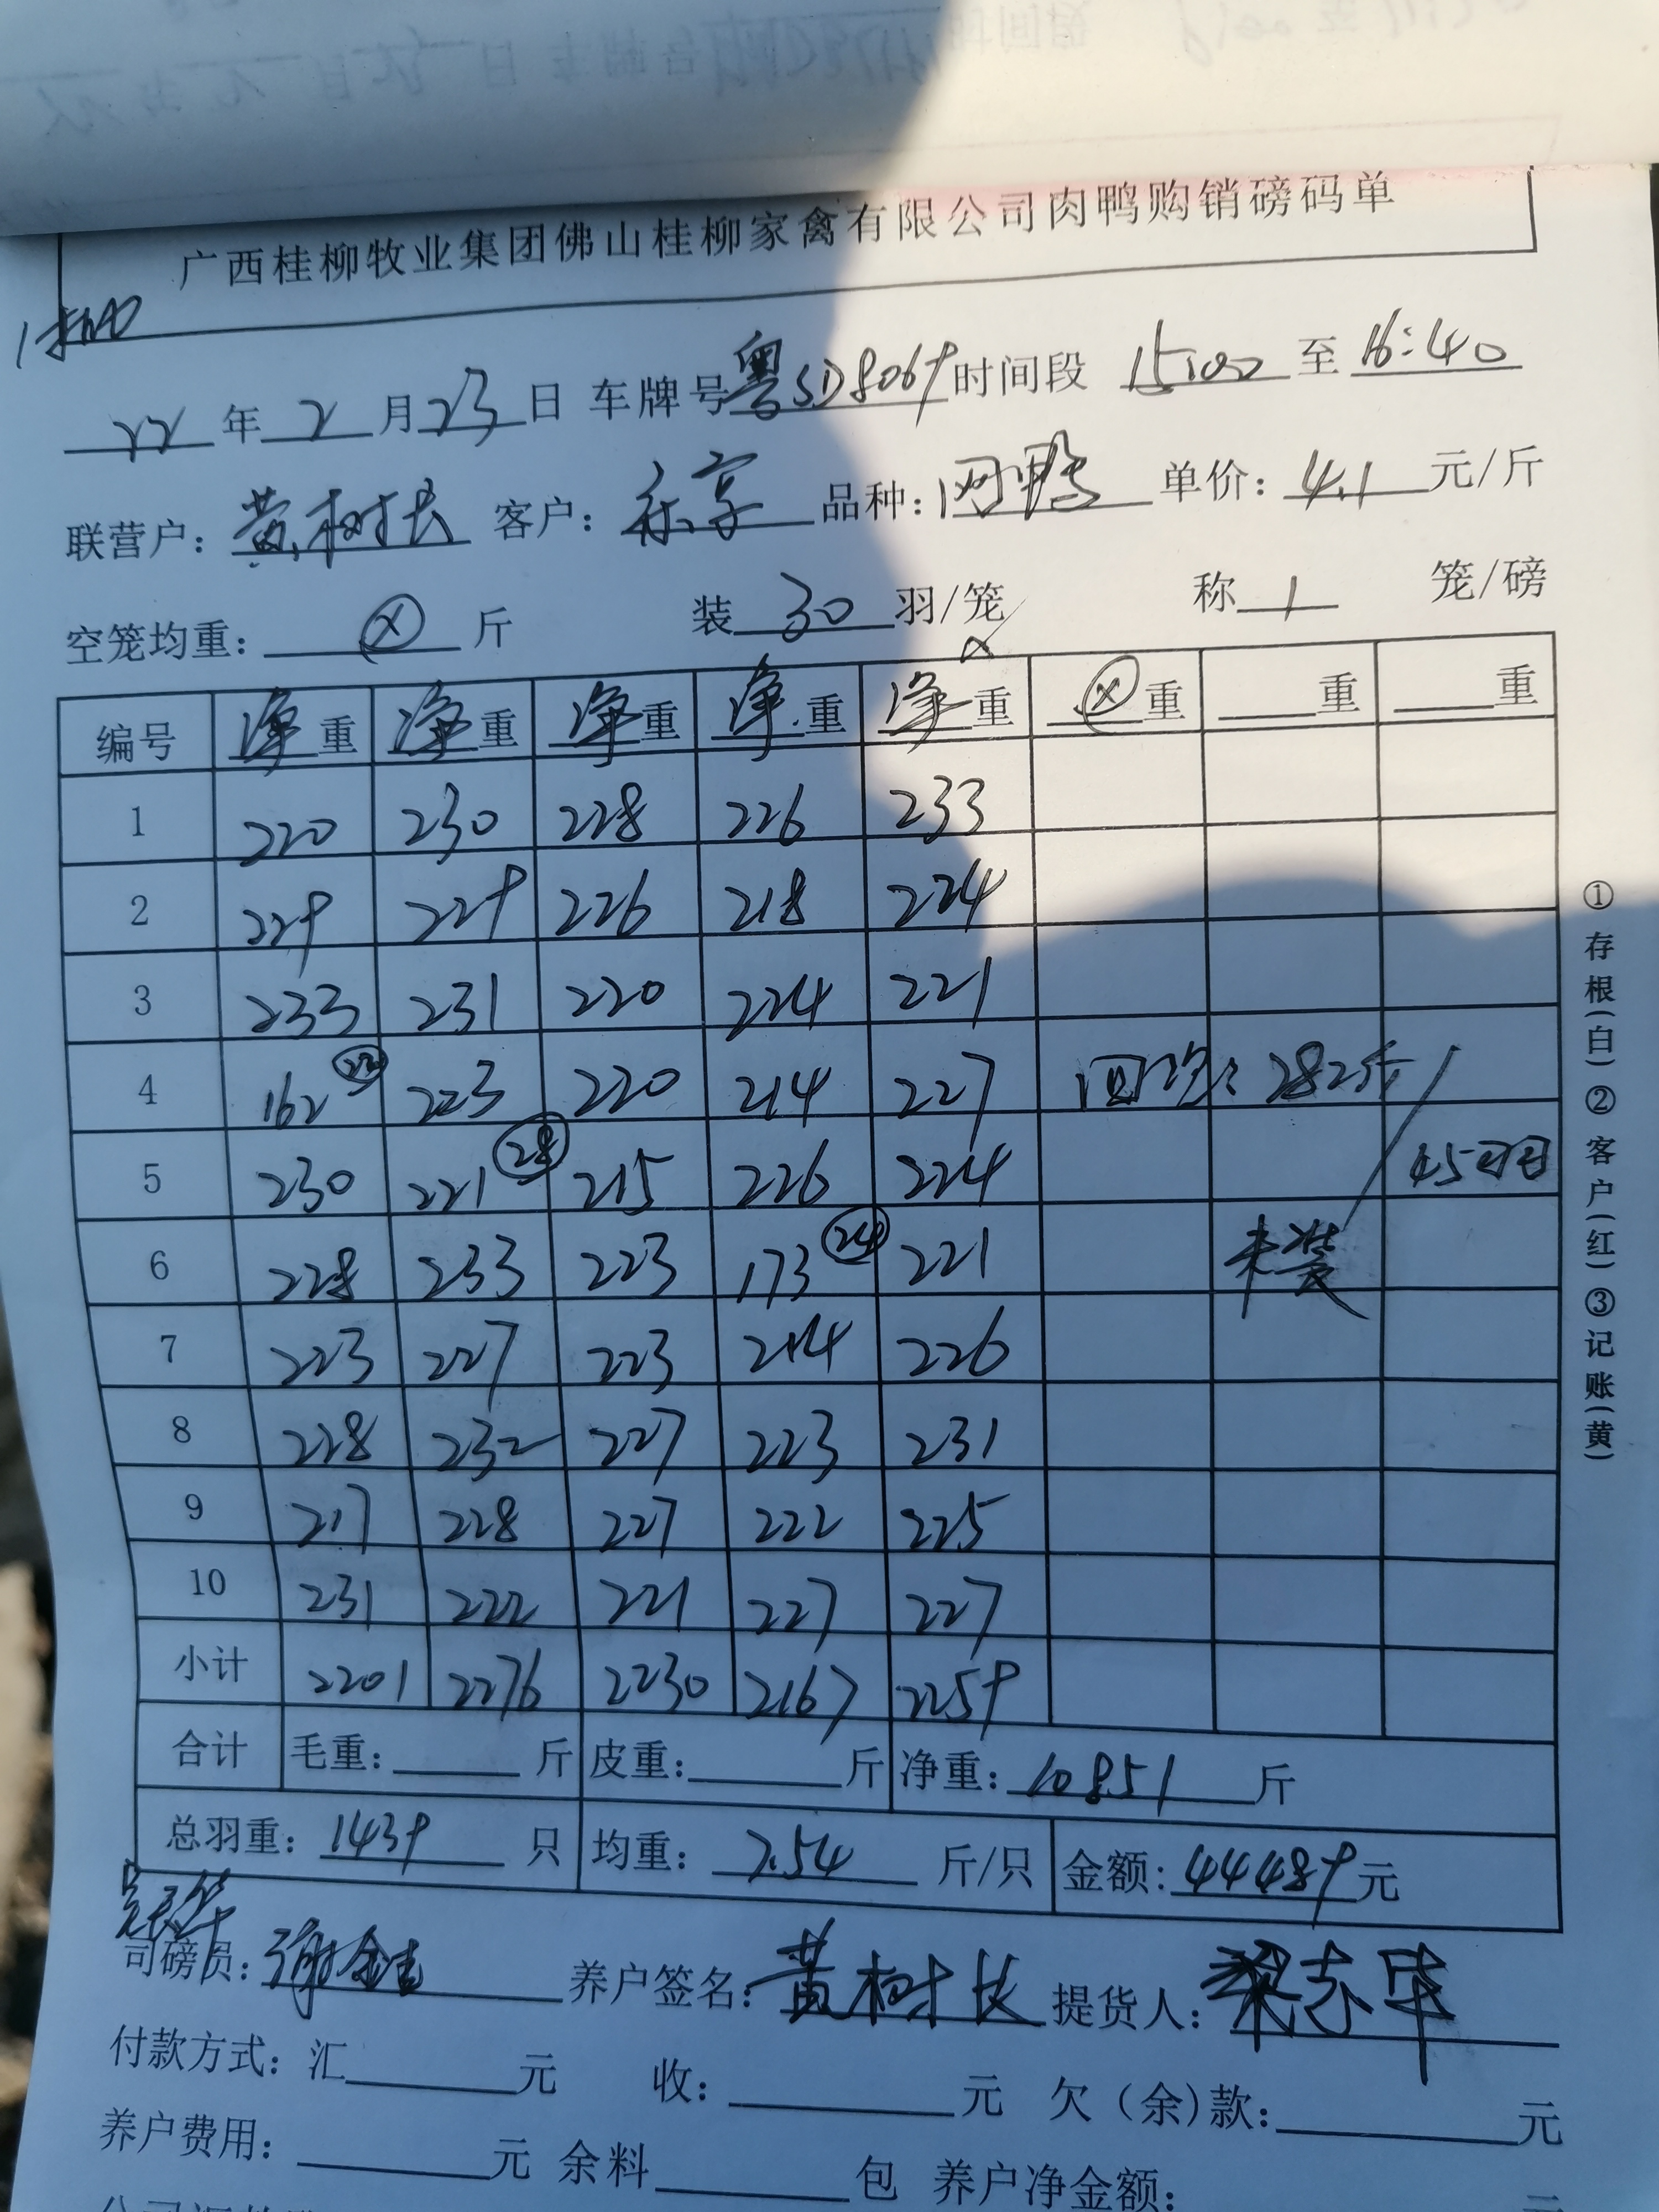 广西桂柳牧业集团佛山桂柳家禽有限公司肉鸭购销磅码单
22 年 2 月 23 日 车牌号 粤SD8069 时间段 15:00 至 16:40
联营户: 黄树长 客户: 品种: 网鸭 单价: 4.1 元/斤
空笼均重: ⓧ 斤 装 30 羽/笼 称 1 笼/磅
编号 净重 净重 净重 净重 净重 ⓧ重 重 重
1 220 230 228 226 233
2 229 229 226 218 224
3 233 231 220 224 221
4 162 22 223 220 214 227 282斤/
5 230 221 28 215 226 224 45羽
6 228 233 223 173 24 221 未装
7 223 227 223 214 226
8 228 232 227 223 231
9 217 228 227 222 225
10 231 222 221 227 227
小计 2201 2276 2230 2167 2259
合计 毛重: 斤 皮重: 斤 净重: 10851 斤
总羽重: 1439 只 均重: 7.54 斤/只 金额: 44489 元
司磅员: 养户签名: 黄树长 提货人:
付款方式: 汇 元 收: 元 欠(余)款: 元
养户费用: 元 余料 包 养户净金额: 元
①存根(白)②客户(红)③记账(黄)